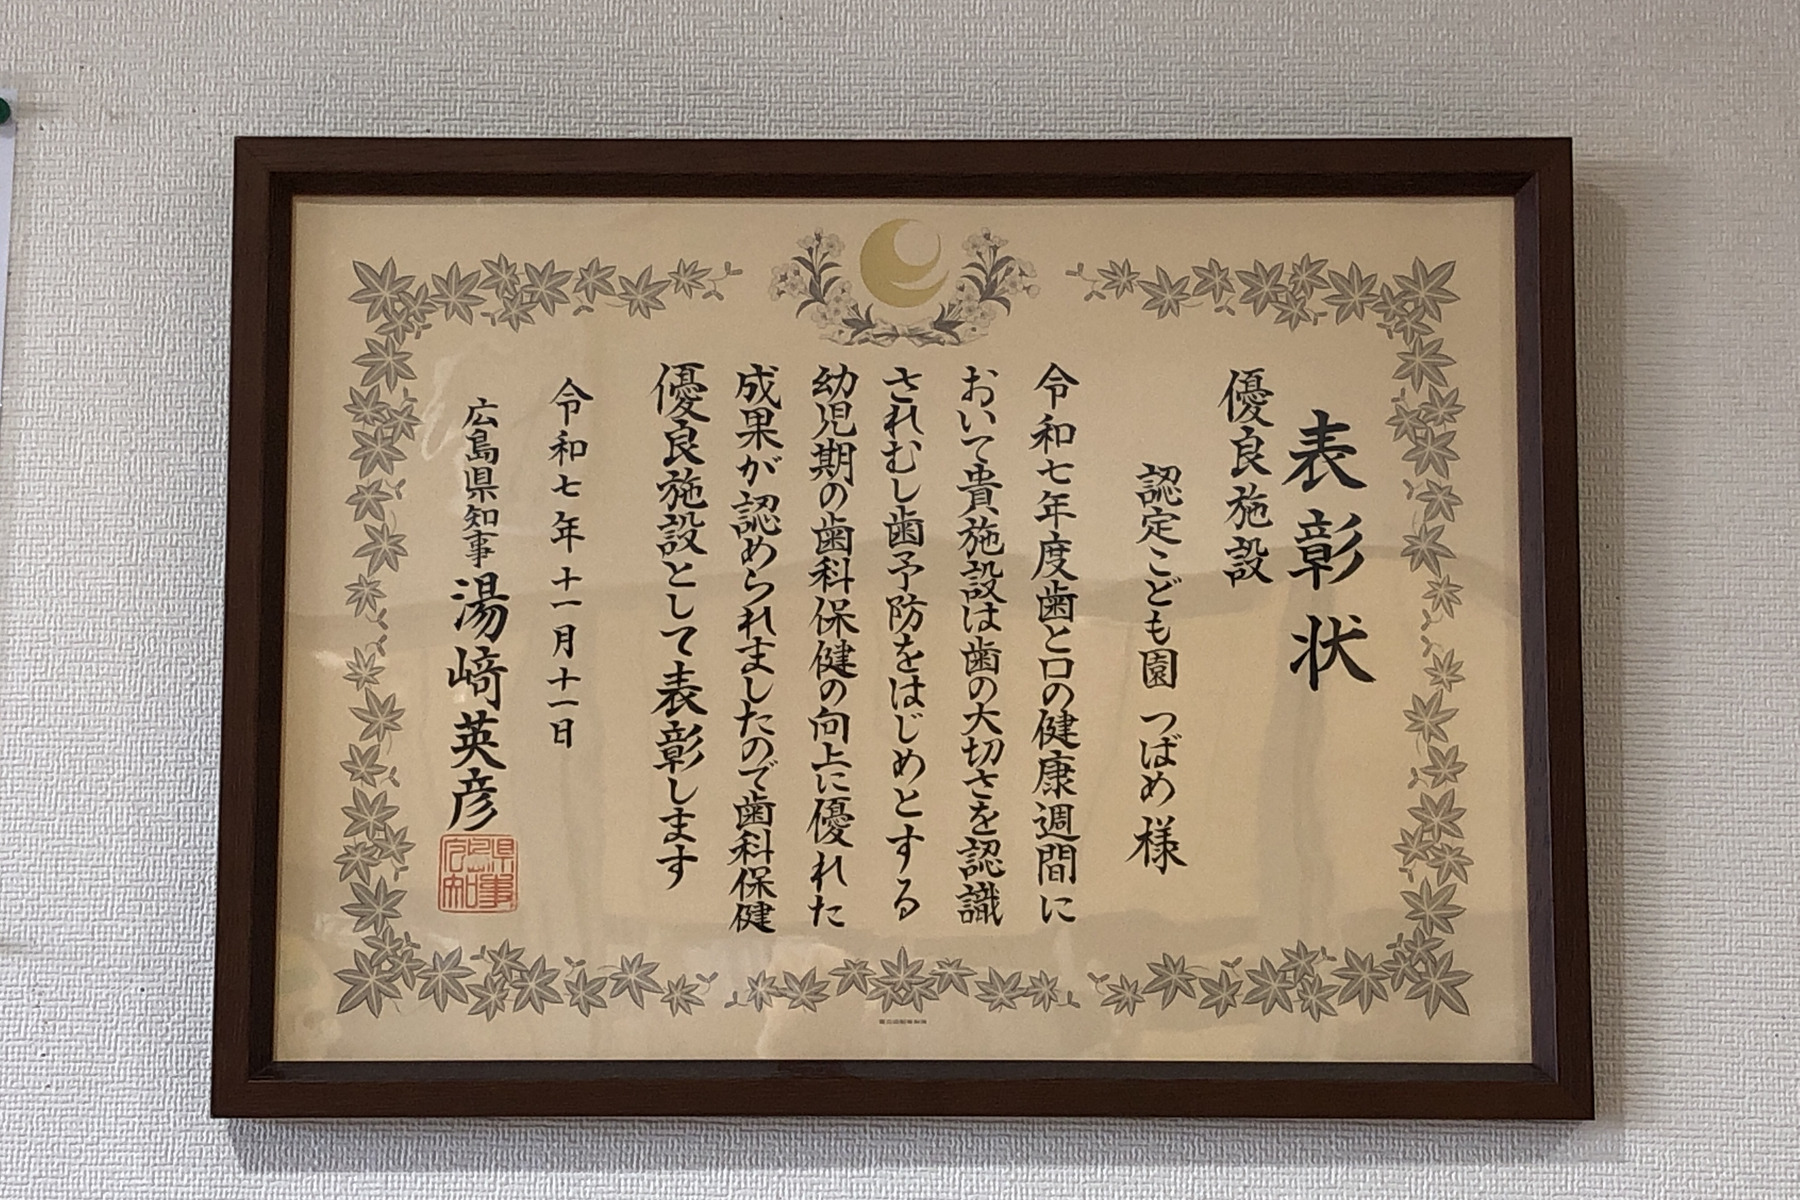 表彰状
優良施設
認定こども園 つばめ 様
令和七年度歯と口の健康週間に
おいて貴施設は歯の大切さを認識
されむし歯予防をはじめとする
幼児期の歯科保健の向上に優れた
成果が認められましたので歯科保健
優良施設として表彰します
令和七年十一月十一日
広島県知事 湯﨑英彦